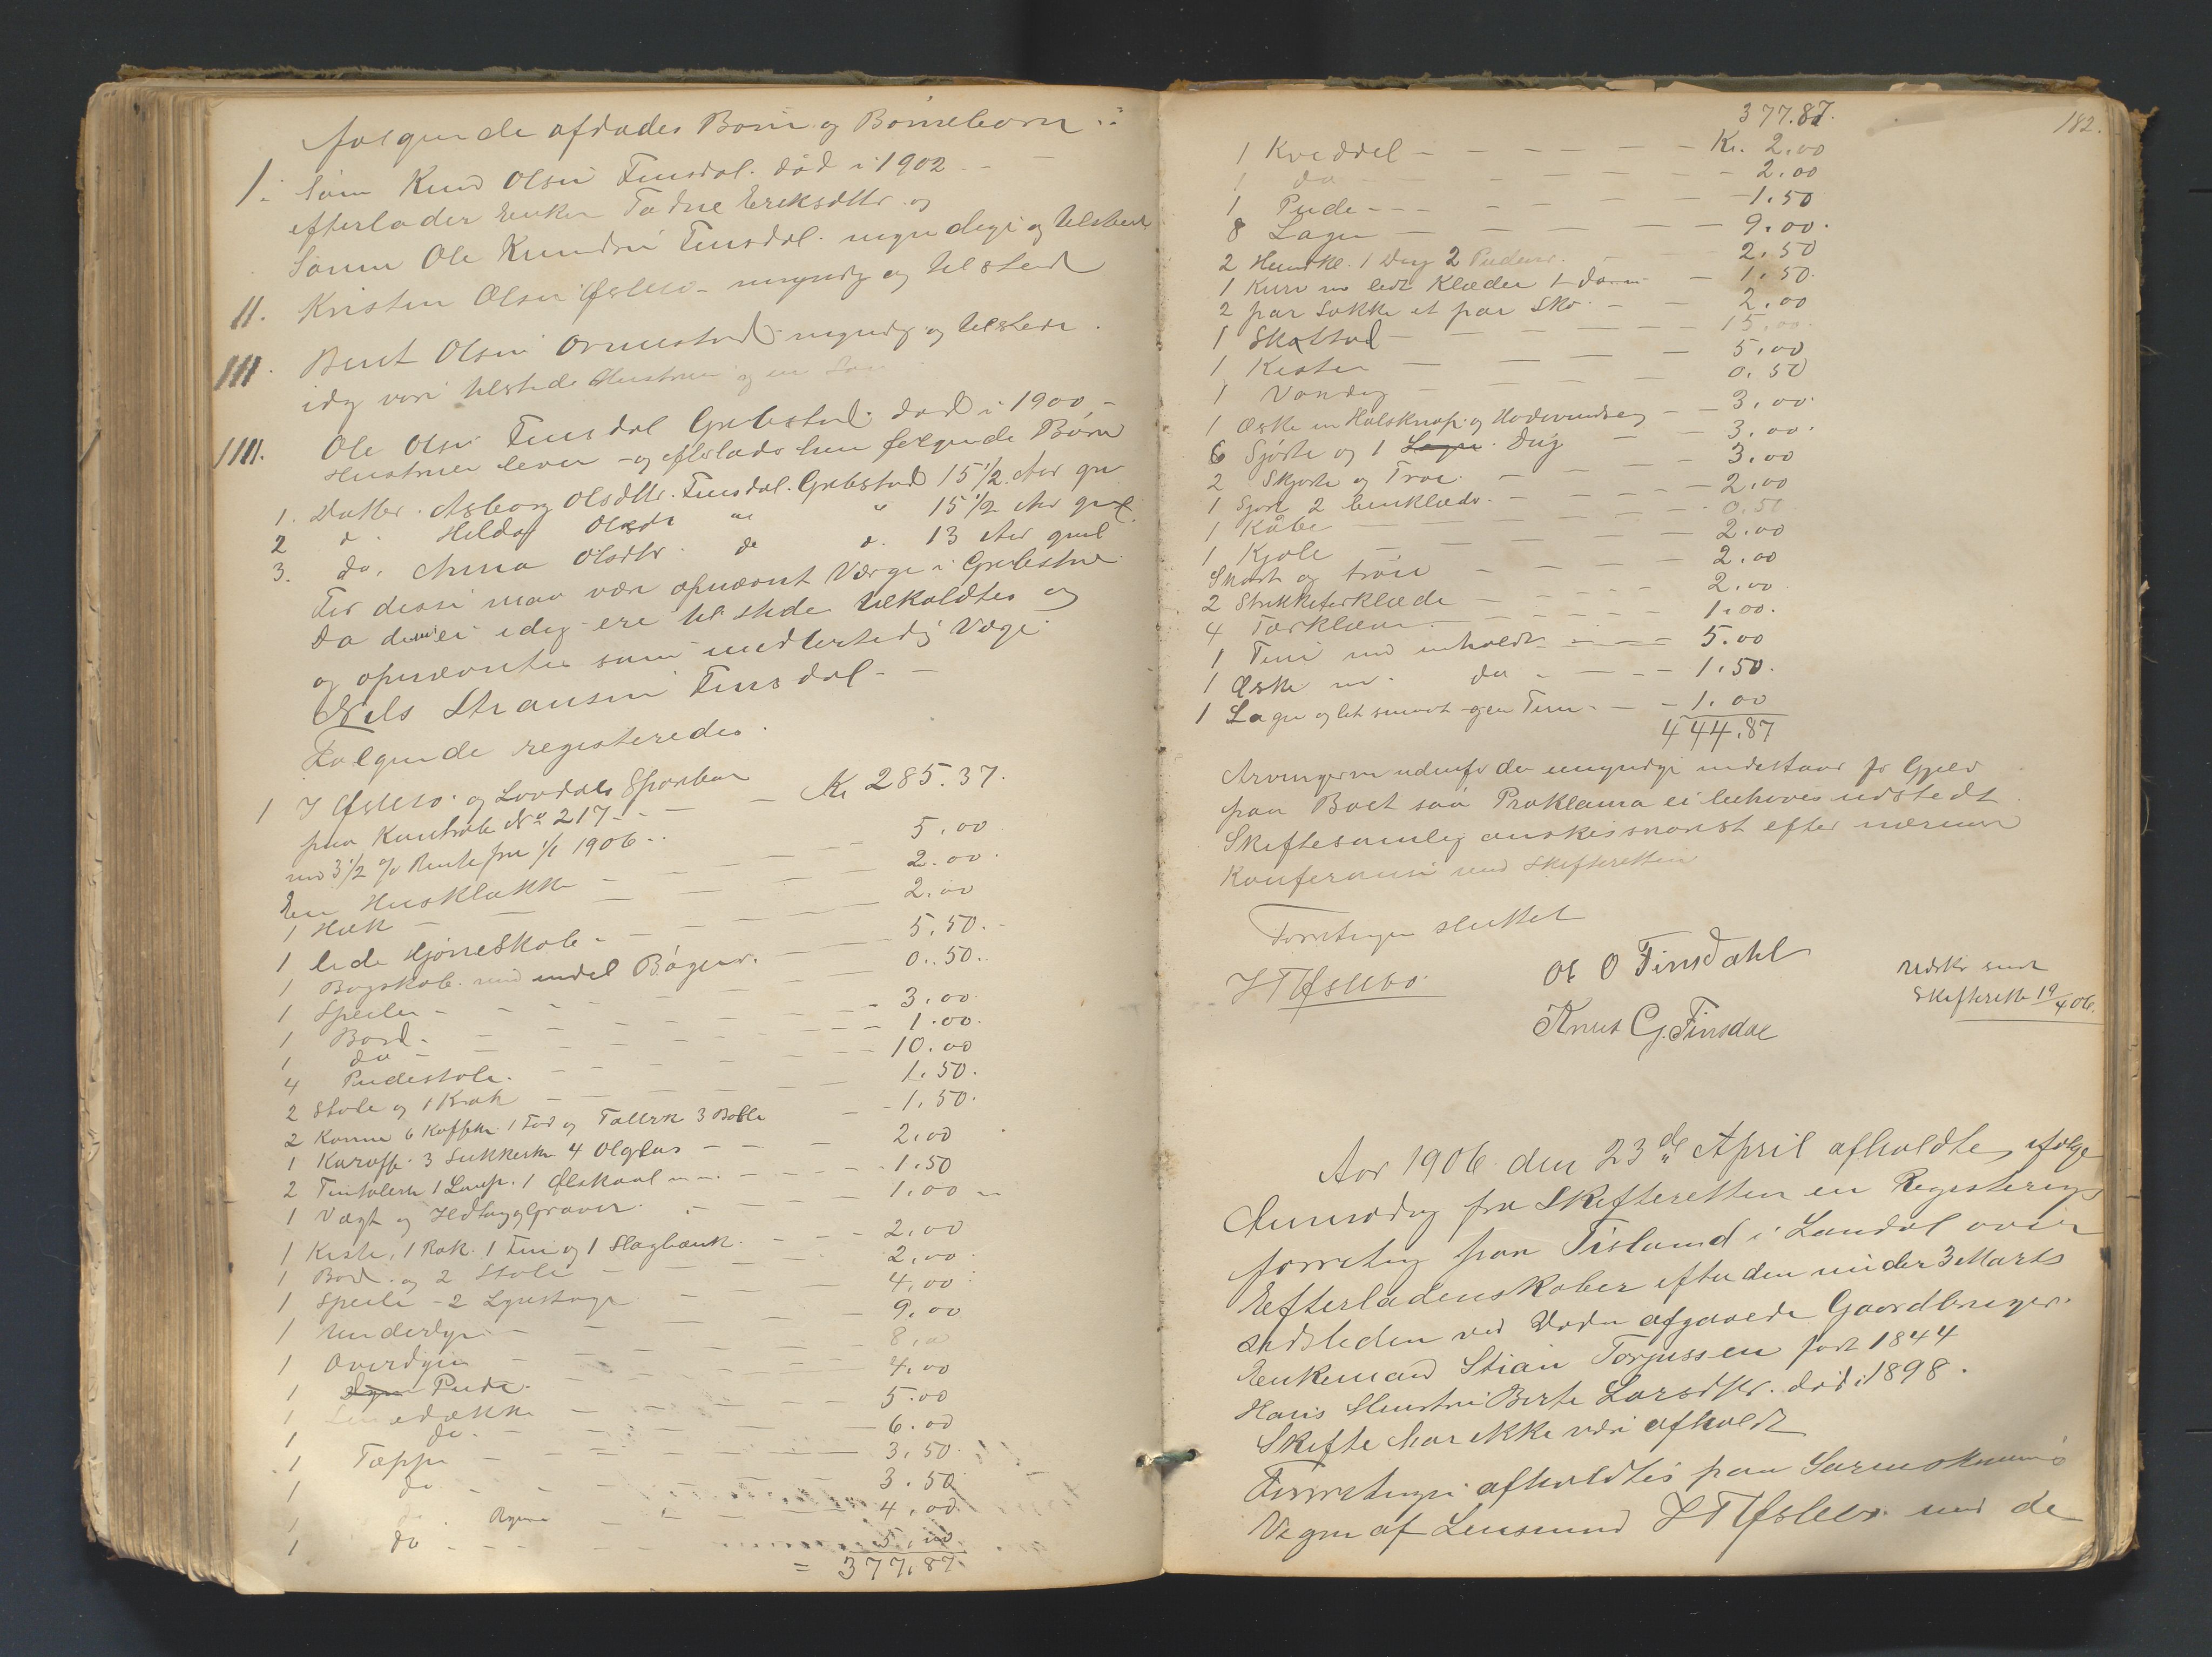 følgende afdødes Børn og Børnebørn:
1. Søn Knud Olsen Finsdal. død i 1902
efterlader Enken Tadne Eriksdttr. og
Sønnen Ole Knudsen Finsdal. myndige og tilstede
11. Kristen Olsen Øslebø - myndig og tilstede
111. Berit Olsen Ormestad - myndig og tilstede.
idag var tilstede Hustruen og en Søn
1111. Ole Olsen Finsdal Grebstad. død i 1900 -
Hustruen lever - og efterlader hun følgende Børn
1. Datter. Asborg Olsdttr. Finsdal. Grebstad 15 1/2 Aar gml
2 d. Helda Olsdtr " " 15 1/2 Aar gml
3. do. Anna Olsdtr. do d. 13 Aar gml
For disse maa være opnævnt Værge i Grebstad
Da denne ei idag ere tilstede tilkaldtes og
og opnævntes som midlertidig Værge
Nils Stiansen Finsdal -
Følgende registeredes.
1 I Øslebø og Laudals Sparebank
paa Kontrabok No 217 - - - Kr 285.37.
med 3 1/2 % Rente fra 1/1 1906 -
En Husklokke - 5,00
1 Hæk - 2.00
1 lide Hjørneskab - 2.00
1 Bogskab. med endel Bøger. 5,50.
1 Speilen - 0.50.
1 Bord. - 3,00
1 do - 1.00.
4 Pudestole. - 10.00
2 Stole og 1 Krak 1.50.
2 Kanne 6 Kaffek. 1 Fad og Tallerk 3 Bolle - 1.50.
1 Karaffe 3 Sukkersk 4 Olglas - 2,00
2 Tintalerk 1 Lamp. 1 Ølskaal - 1.50
1 Vægt og Ildtang Graver. 1.00
1 Kiste, 1 Rok. 1 Tin og 1 Slagbænk. - 2,00
1 Bord. og 2 Stole 2,00
1 Speile - 2 Lysestager 4,00
1 Underdyne - 9.00
1 Overdyne 8,00
1 Pude. 4,00
1 dække 5.00
1 do. 6.00
1 Tæppe 3,50.
1 do. 3.50
1 Ryen 4,00
1 do - 5,00
= 377,87.
182.
377.87.
1 Kveddel - Kr. 2,00
1 do - 2,00
1 Pude - 1.50
8 Lagen - 9.00.
2 Hændkl. 1 Dug 2 Puder. 2,50
1 Kurv m lidt Klæder 1 - 1.50.
2 par Sokke et par Sko. - 2,00
1 Skattol - 15,00.
1 Kister - 5,00
1 Vandeg - 0.50
1 Æske en Halsknap og Hodevandsæg - 3,00.
6 Sjørte og 1 Lagen. Dug 3,00.
2 Skjorte og Trøe. 3.00
1 Sjort 2 benklæder. 2,00
1 Kåbe 0.50
1 Kjole 2.00
Skjort og trøie 2.00
2 Strikketørklæde 2,00
4 Tørklæder. 1.00.
1 Tine med inhold - 5.00
1 Æske m. do - 1.50.
1 Lagen og lit smaat - gen Tin - 1.00
444.87
Arvingerne udenfor de umyndige indestaar for Gjeld
paa Boet saa Proklama ei behøves udstedt
Skiftesamling ønskes snarest efter nærmere
Konferanse med Skifteretten
Forretningen sluttet
H T Øslebø. Ol O Finsdahl
Knut G. Finsdal
Udskr. sendt
Skifteretten 19/4 06.
Aar 1906 den 23de April afholdtes, ifølge
Anmodning fra Skifteretten en Registerings
forretning paa Tisland i Laudal over
Efterladenskaber efter den under 3 Marts
sidstleden ved Døden afgaaede Gaardbruger.
Enkemand Stian Torjussen født 1844
Hans Hustru Berte Larsdttr. død i 1898.
Skifte har ikke vær afholdt
Forretningen afholdtes paa Sorenskriverens
Vegne af Lensmand H T Øslebø med de